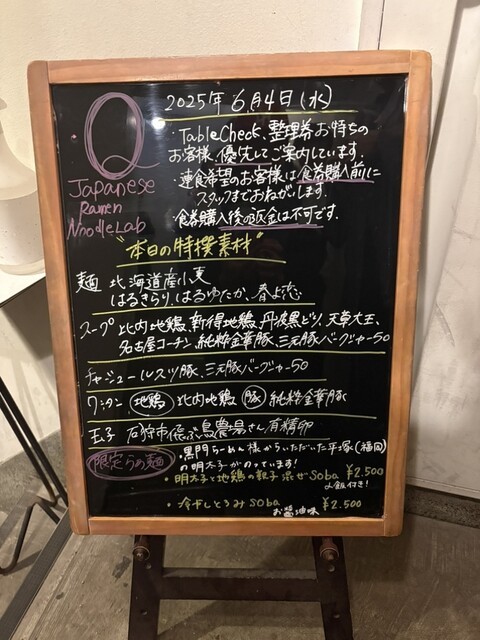 2025年 6月4日（水）
Q
Japanese
Ramen
Noodle Lab
・TableCheck、整理券お持ちの
お客様、優先してご案内しています。
・連食希望のお客様は食券購入前に
スタッフまでおねがいします。
・食券購入後の返金は不可です。
"本日の特撰素材"
麺 北海道産小麦
はるきらり、はるゆたか、春よ恋
スープ 比内地鶏、新得地鶏、丹波黒どり、天草大王、
名古屋コーチン、純粋金華豚、三元豚バーグカー50
チャーシュー ルスツ豚、三元豚バーグカー50
ワンタン 地鶏 比内地鶏 豚 純粋金華豚
玉子 石狩市飛ぶ鳥農場さん有精卵
限定らぁ麺
・黒門らーめん様からいただいた平塚(福岡)
の明太子がのっています！
・明太子と地鶏の親子混ぜSoba ¥2.500
〆飯付き！
・冷やしとろみSoba ¥2.500
お醤油味